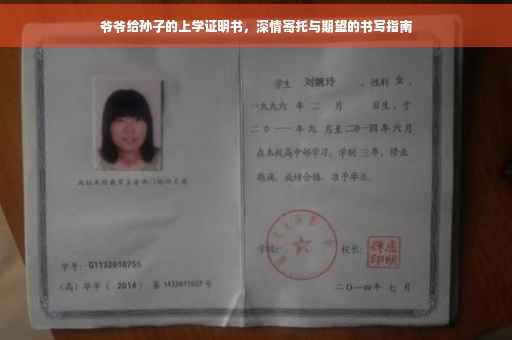 爷爷给孙子的上学证明书，深情寄托与期望的书写指南
学生 刘婉玲 ，性别 女 ，
一九九六 年 二 月 日生，于
二〇一一年九 月至二〇一四年 六 月
在本校高中部学习，学制 三年，修业
期满，成绩合格，准予毕业。
学号：G1132010755
学校： 校长：
(高) 毕字 ( 2014 ) 第 1432011027 号
二〇一四年 七 月